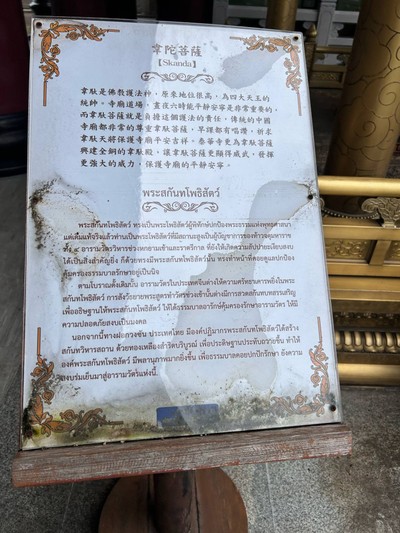 韋陀菩薩
【Skanda】
韋馱是佛教護法神，原來地位很高，為四大天王的
統帥，寺廟道場，晝夜六時能平靜安寧是非常重要的，
而韋馱菩薩就是負擔這個護法的責任，傳統的中國
寺廟都非常的尊重韋馱菩薩，早課都有唱讚，祈求
韋馱天將保護寺廟平安吉祥，泰華寺更為韋馱菩薩
興建全銅的韋馱殿，讓韋馱菩薩更顯得威武，發揮
更強大的威力，保護寺廟的平靜安寧。
พระสกันทโพธิสัตว์
พระสกันทโพธิสัตว์ ทรงเป็นพระโพธิสัตว์ผู้พิทักษ์ปกป้องพระธรรมแห่งพุทธศาสนา
แต่เดิมแท้จริงแล้วท่านเป็นพระโพธิสัตว์ที่มีสถานะสูงเป็นผู้บัญชาการของท้าวจตุมหาราช
ทั้ง ๔ อารามวัดวิหารช่วงหกยามเช้าและราตรีกาล ที่ยังให้เกิดความสัปปายะเงียบสงบ
ได้เป็นสิ่งสำคัญยิ่ง ก็ด้วยทรงมีพระสกันทโพธิสัตว์นั้น ทรงทำหน้าที่คอยดูแลปกป้อง
คุ้มครองธรรมบาลรักษาอยู่เป็นนิจ
ตามโบราณดั้งเดิมนั้น อารามวัดในประเทศจีนต่างให้ความศรัทธาเคารพยิ่งในพระ
สกันทโพธิสัตว์ การสังวัธยายพระสูตรทำวัตรช่วงเช้านั้นต่างมีการสวดคันถบทสรรเสริญ
เพื่ออธิษฐานให้พระสกันทโพธิสัตว์ ให้ได้ธรรมบาลอารักษ์คุ้มครองรักษาอารามวัดวา ให้มี
ความปลอดภัยสงบเป็นมงคล
นอกจากนี้ทางฝอกวงซัน ประเทศไทย มีองค์ปฏิมากรพระสกันทโพธิสัตว์ได้สร้าง
สกันทวิหารสถาน ด้วยทองเหลืองสำริดบริบูรณ์ เพื่อประดิษฐานประทับถวายขึ้น ทำให้
องค์พระสกันทโพธิสัตว์ มีพลานุภาพมากยิ่งขึ้น เพื่อธรรมบาลคอยปกปักรักษา ยังความ
สงบร่มเย็นมาสู่อารามวัดแห่งนี้.